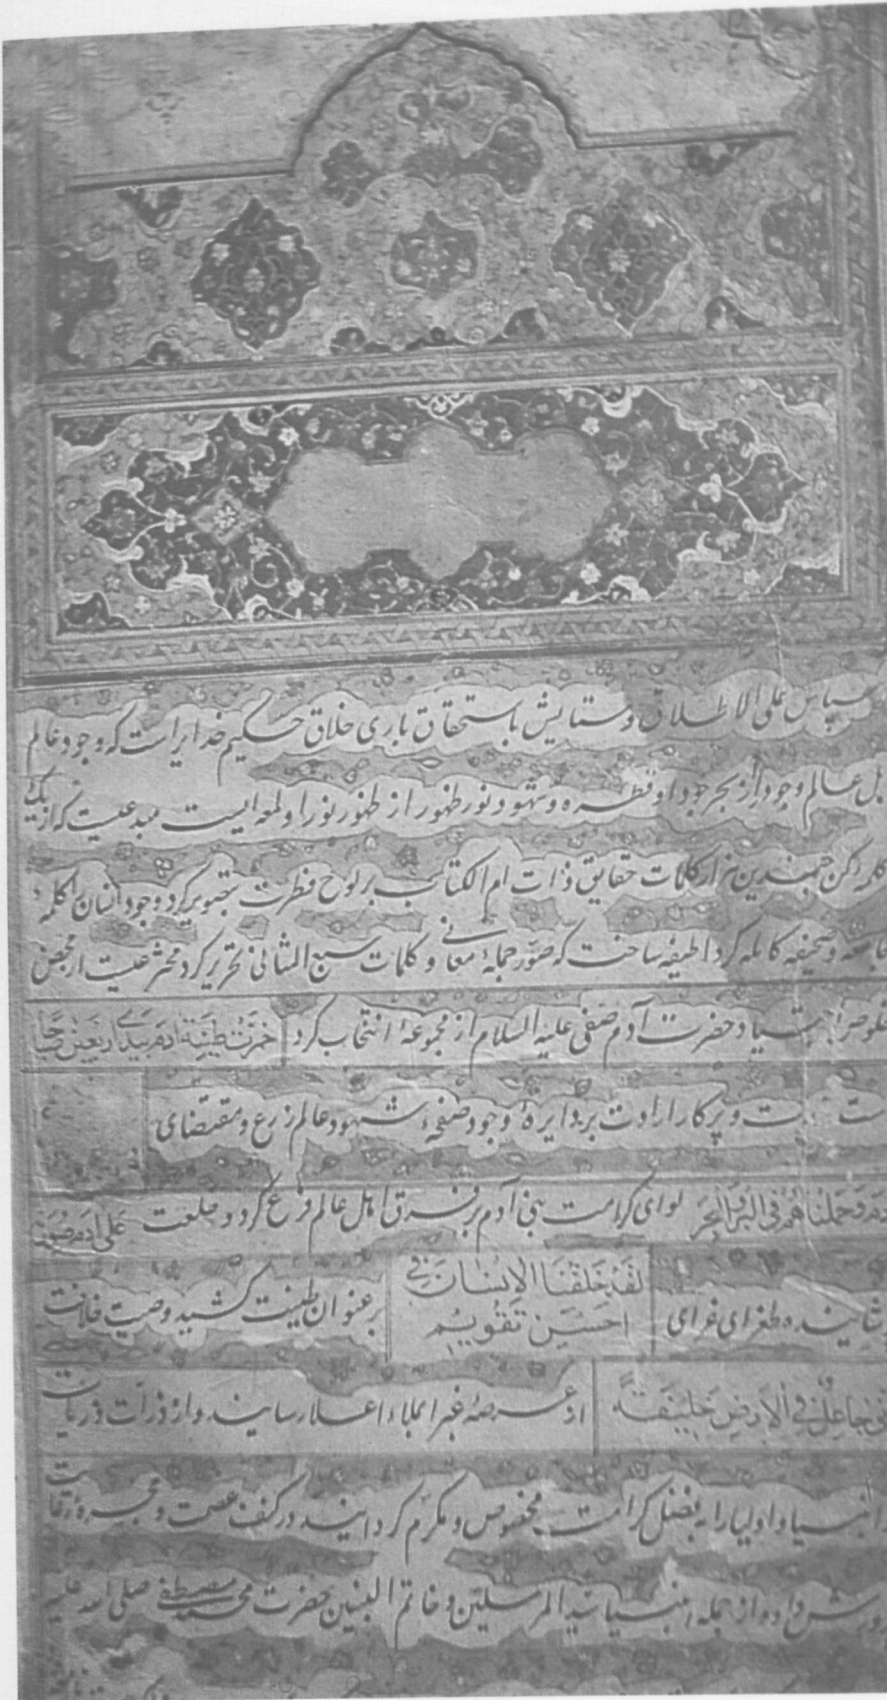 سپاس علی الاطلاق و ستایش باستحقاق باری خلاق حکیم خدایراست که وجود عالم
بل عالم وجود از بحر جود او قطره و شهود نور ظهور از ظهور نور او لمعه ایست مبدعیست که از یک
کلمه کن چندین هزار کلمات حقایق ذات ام الکتاب بر لوح فطرت تصویر کرد وجود انسان کلمهٔ
جامعه و صحیفه کامله کرد لطیفه ساخت که صور جمله معانی و کلمات سبع المثانی تحریر کرد مخترعیست از محض
حضرت آدم صفی علیه السلام از مجموعهٔ انتخاب کرد خمرت طینة آدم بیدی اربعین صباحا
و پرکار ارادت بر دایرهٔ وجود صفحهٔ شهود عالم زرع و مقتضای
و حملناهم فی البر والبحر لوای کرامت بنی آدم بر فرق اهل عالم فرع کرد و خلعت علی صورته
طغرای غرای لقد خلقنا الانسان فی احسن تقویم بر عنوان طینت کشید و صیت خلافت
جاعل فی الارض خلیفة از عرصهٔ غبرا بملاء اعلا رسانید و از ذرات ذریات
انبیا و اولیا را بفضل کرامت مخصوص و مکرم گردانید در کنف عصمت و
داد و از جمله انبیا سید المرسلین و خاتم النبیین حضرت محمد مصطفی صلی الله علیه